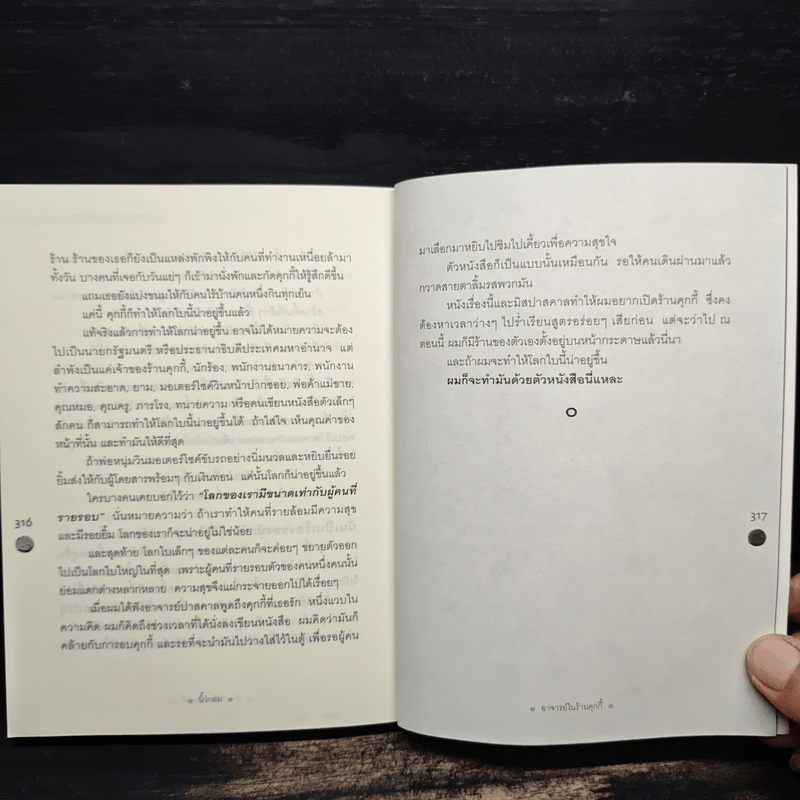 ร้าน ร้านของเธอก็ยังเป็นแหล่งพักพิงให้กับคนที่ทำงานเหนื่อยล้ามา
ทั้งวัน บางคนที่เจอกับวันแย่ๆ ก็เข้ามานั่งพักและกัดคุกกี้ให้รู้สึกดีขึ้น
แถมเธอยังแบ่งขนมให้กับคนไร้บ้านคนหนึ่งกินทุกเย็น
แค่นี้ คุกกี้ก็ทำให้โลกใบนี้น่าอยู่ขึ้นแล้ว
แท้จริงแล้วการทำให้โลกน่าอยู่ขึ้น อาจไม่ได้หมายความจะต้อง
ไปเป็นนายกรัฐมนตรี หรือประธานาธิบดีประเทศมหาอำนาจ แต่
ลำพังเป็นแค่เจ้าของร้านคุกกี้, นักร้อง, พนักงานธนาคาร, พนักงาน
ทำความสะอาด, ยาม, มอเตอร์ไซค์วินหน้าปากซอย, พ่อค้าแม่ขาย,
คุณหมอ, คุณครู, ภารโรง, ทนายความ หรือคนเขียนหนังสือตัวเล็กๆ
สักคน ก็สามารถทำให้โลกใบนี้น่าอยู่ขึ้นได้ ถ้าใส่ใจ เห็นคุณค่าของ
หน้าที่นั้น และทำมันให้ดีที่สุด
ถ้าพ่อหนุ่มวินมอเตอร์ไซค์ขับรถอย่างนิ่มนวลและหยิบยื่นรอย
ยิ้มส่งให้กับผู้โดยสารพร้อมๆ กับเงินทอน แค่นั้นโลกก็น่าอยู่ขึ้นแล้ว
ใครบางคนเคยบอกไว้ว่า “โลกของเรามีขนาดเท่ากับผู้คนที่
รายรอบ” นั่นหมายความว่า ถ้าเราทำให้คนที่รายล้อมมีความสุข
และมีรอยยิ้ม โลกของเราก็จะน่าอยู่ไม่ใช่น้อย
และสุดท้าย โลกใบเล็กๆ ของแต่ละคนก็จะค่อยๆ ขยายตัวออก
ไปเป็นโลกใบใหญ่ในที่สุด เพราะผู้คนที่รายรอบตัวของคนหนึ่งคนนั้น
ย่อมแตกต่างหลากหลาย ความสุขจึงแผ่กระจายออกไปได้เรื่อยๆ
เมื่อผมได้ฟังอาจารย์ปาสคาลพูดถึงคุกกี้ที่เธอรัก หนึ่งแวบใน
ความคิด ผมก็คิดถึงช่วงเวลาที่ได้นั่งลงเขียนหนังสือ ผมคิดว่ามันก็
คล้ายกับการอบคุกกี้ และรอที่จะนำมันไปวางใส่ไว้ในตู้ เพื่อรอผู้คน
316
๑ นิ้วกลม ๑
มาเลือกมาหยิบไปชิมไปเคี้ยวเพื่อความสุขใจ
ตัวหนังสือก็เป็นแบบนั้นเหมือนกัน รอให้คนเดินผ่านมาแล้ว
กวาดสายตาลิ้มรสพวกมัน
หนังเรื่องนี้และมิสปาสคาลทำให้ผมอยากเปิดร้านคุกกี้ ซึ่งคง
ต้องหาเวลาว่างๆ ไปร่ำเรียนสูตรอร่อยๆ เสียก่อน แต่จะว่าไป ณ
ตอนนี้ ผมก็มีร้านของตัวเองตั้งอยู่บนหน้ากระดาษแล้วนี่นา
และถ้าผมจะทำให้โลกใบนี้น่าอยู่ขึ้น
ผมก็จะทำมันด้วยตัวหนังสือนี่แหละ
317
๑ อาจารย์ในร้านคุกกี้ ๑